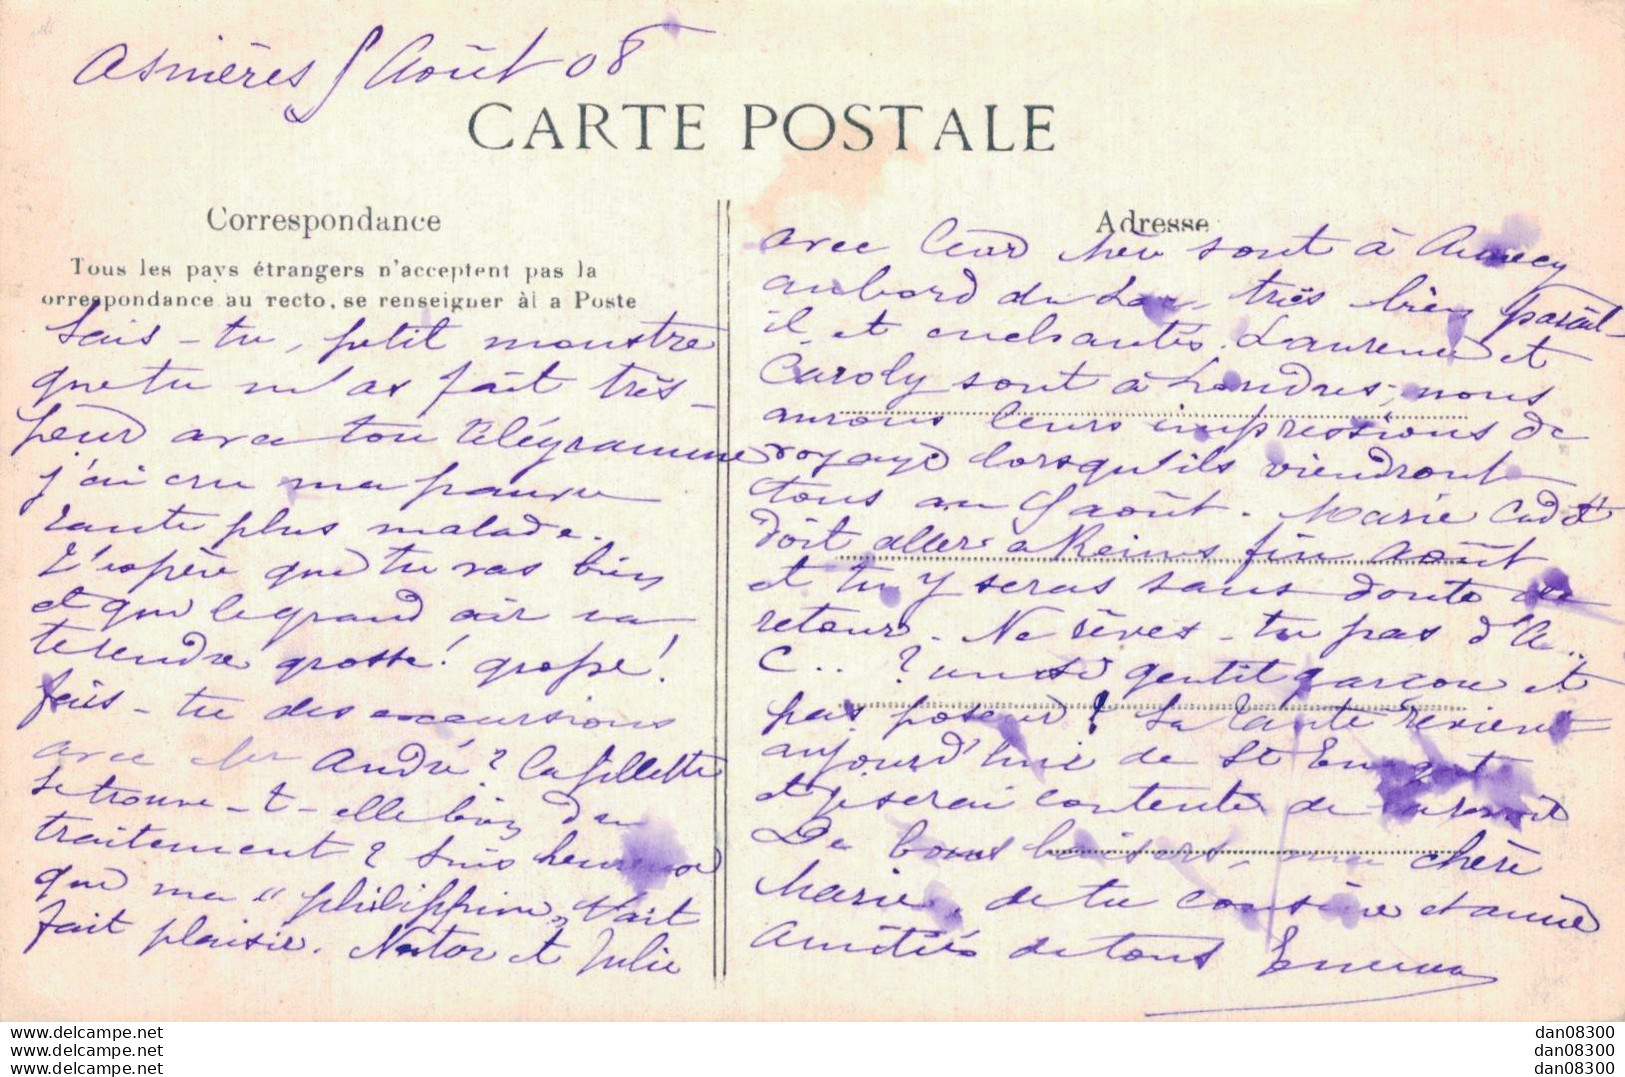 Asnières 8 Août 08
CARTE POSTALE
Correspondance
Tous les pays étrangers n'acceptent pas la
orrespondance au recto, se renseigner ài a Poste
Sais-tu, petit monstre
que tu m'as fait très
peur avec ton télégramme
j'ai cru ma pauvre
tante plus malade.
J'espère que tu vas bien
et que le grand air va
te rendre grosse! grosse!
fais-tu des excursions
avec cher André? La fillette
se trouve-t-elle bien du
traitement? Suis heureuse
que ma "philippine" t'ait
fait plaisir. Nestor et Julie
Adresse
avec leur chou sont à Annecy
au bord du Lac, très bien paraît-
il et enchantés. Laurence et
Caroly sont à Londres; nous
aurons leurs impressions de
voyage lorsqu'ils viendront
tous au 8 août. Marie Cadet
doit aller à Reims fin Août
et tu y seras sans doute de
retour. Ne rêves-tu pas d'A..
C..? un si gentil garçon et
pas poseur! La tante revient
aujourd'hui de St
et je serai contente de
De bons baisers, ma chère
Marie, de ta cousine et amie
Amitiés de tous
www.delcampe.net
www.delcampe.net
www.delcampe.net
dan08300
dan08300
dan08300